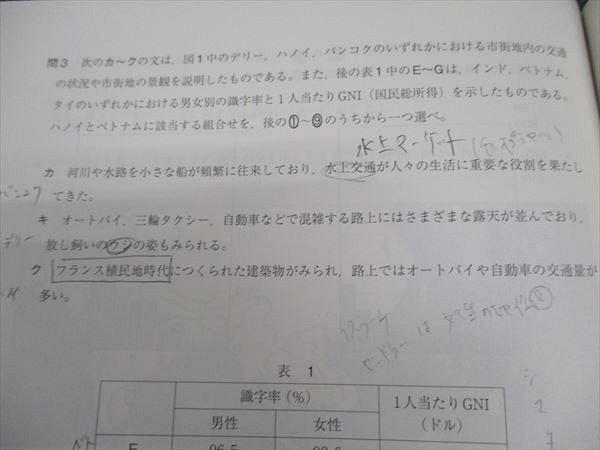 問3 次のカ〜クの文は，図1中のデリー，ハノイ，バンコクのいずれかにおける市街地内の交通
の状況や市街地の景観を説明したものである。また，後の表1中のE〜Gは，インド，ベトナム，
タイのいずれかにおける男女別の識字率と1人当たりGNI（国民総所得）を示したものである。
ハノイとベトナムに該当する組合せを，後の①〜⑨のうちから一つ選べ。
水上マーケット
カ 河川や水路を小さな船が頻繁に往来しており，水上交通が人々の生活に重要な役割を果たし
てきた。
バンコク
キ オートバイ，三輪タクシー，自動車などで混雑する路上にはさまざまな露天が並んでおり，
デリー
放し飼いのウシの姿もみられる。
ク フランス植民地時代につくられた建築物がみられ，路上ではオートバイや自動車の交通量が
多い。
表 1
識字率（%） 1人当たりGNI
男性 女性 （ドル）
ベト E 96.5